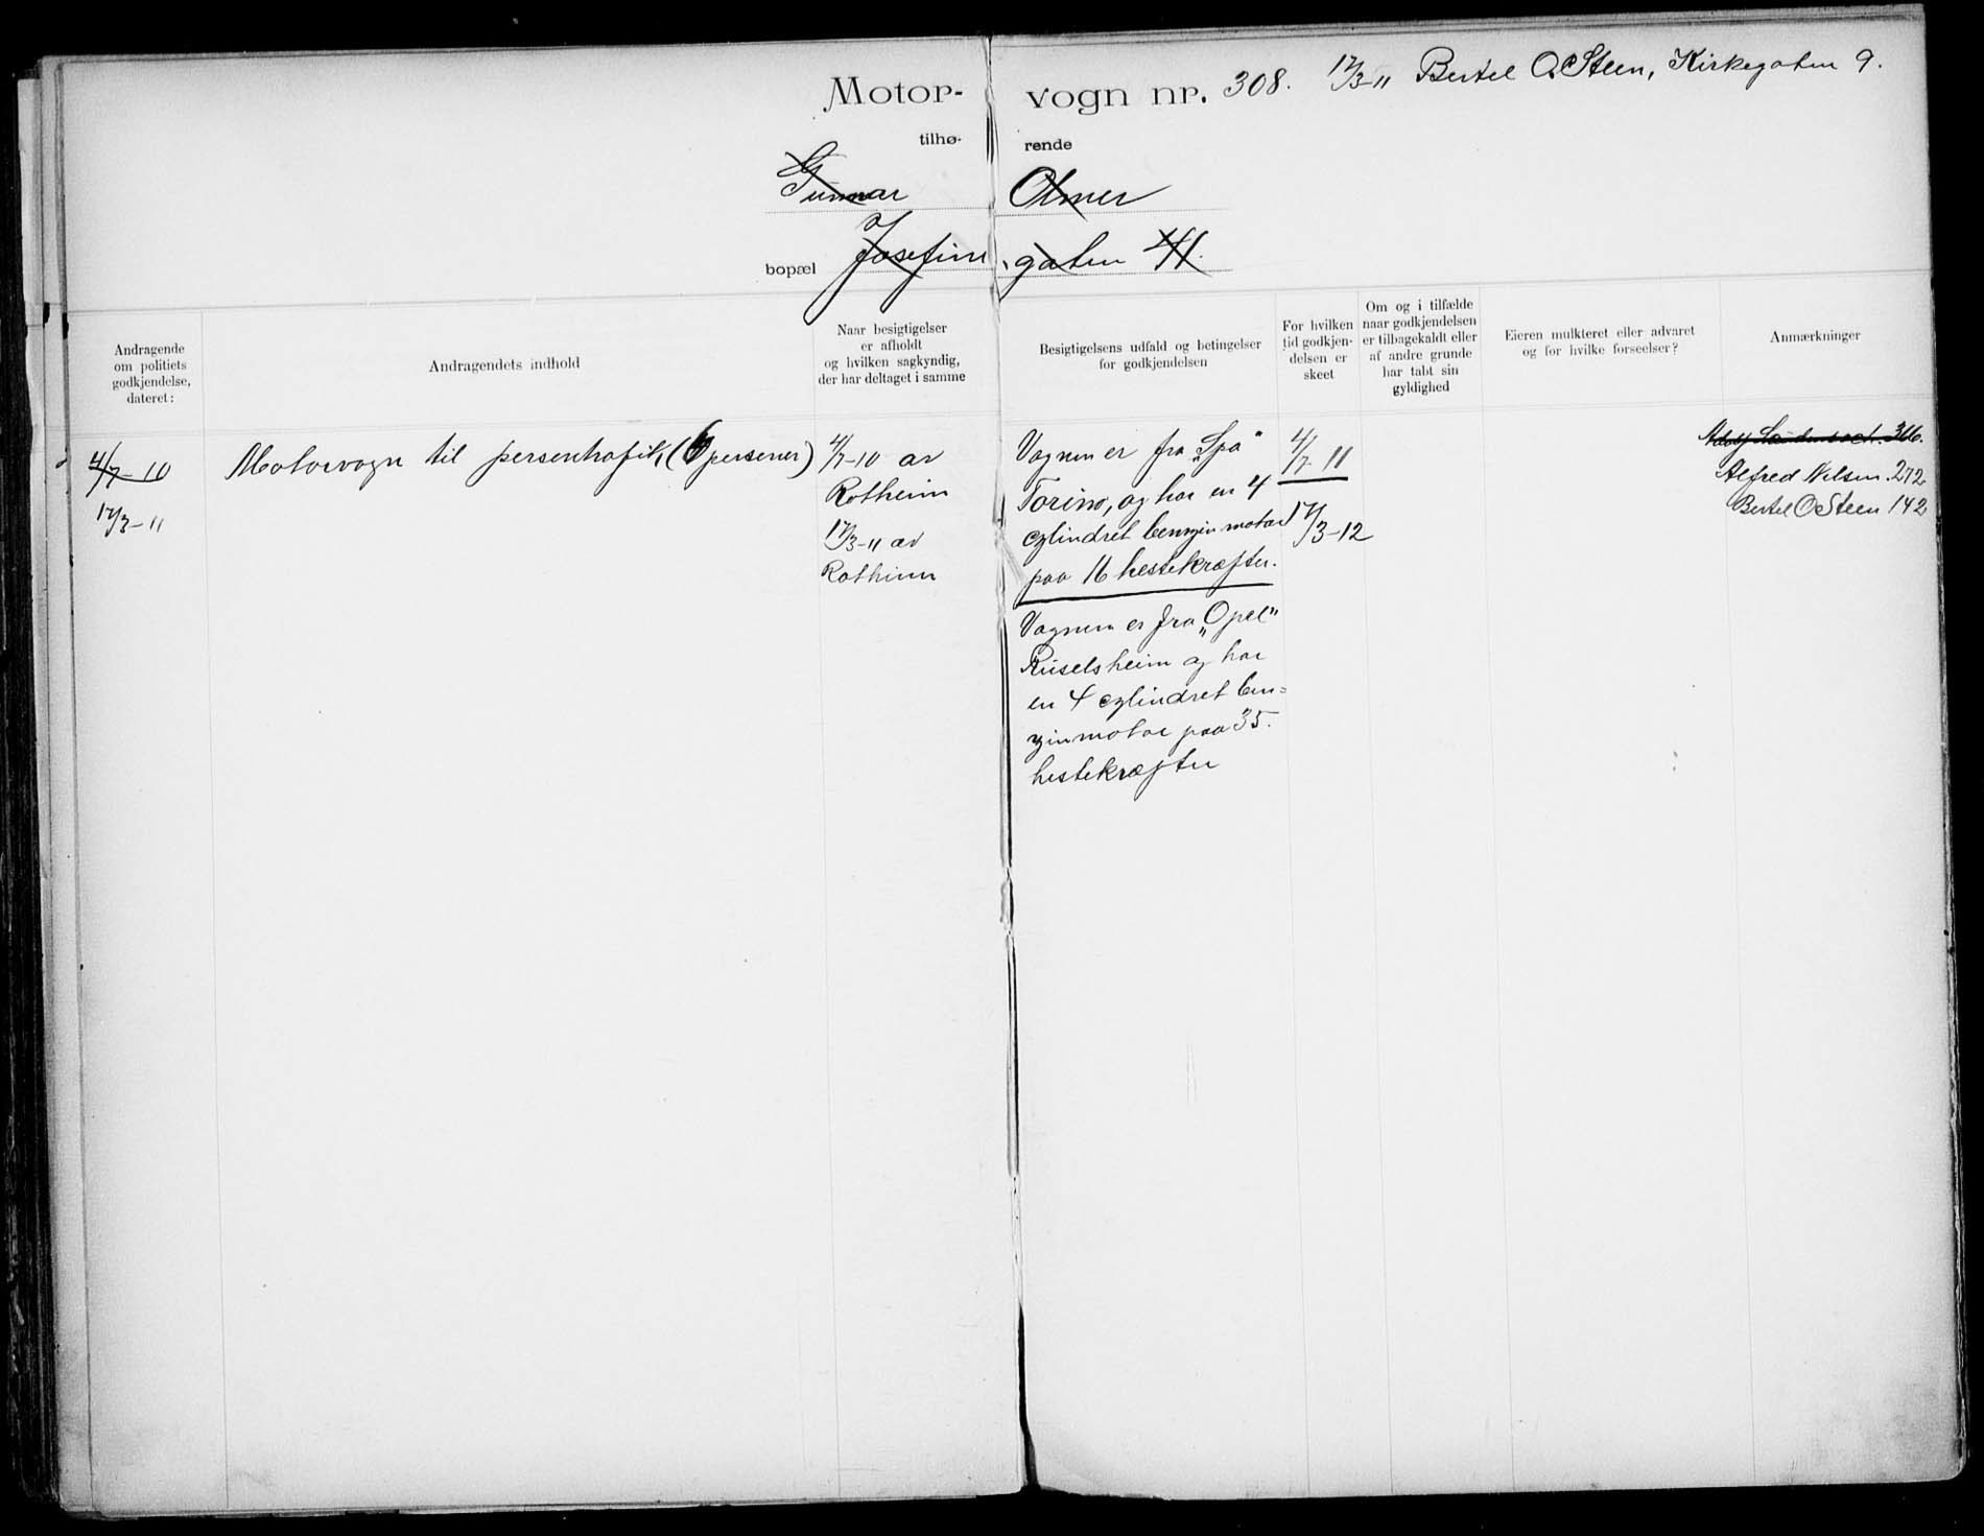 Motor-vogn nr. 308. 17/3-11 Bertel O Steen, Kirkegaten 9.
tilhø-rende
Gunnar Olmer
bopæl Josefinegaten 41.
Andragende
om politiets
godkjendelse,
dateret:
Andragendets indhold
Naar besigtigelser
er afholdt
og hvilken sagkyndig,
der har deltaget i samme
Besigtigelsens udfald og betingelser
for godkjendelsen
For hvilken
tid godkjen-
delsen er
skeet
Om og i tilfælde
naar godkjendelsen
er tilbagekaldt eller
af andre grunde
har tabt sin
gyldighed
Eieren mulkteret eller advaret
og for hvilke forseelser?
Anmærkninger
4/7-10
17/3-11
Motorvogn til persontrafik, (6 personer)
4/7-10 av
Rotheim
17/3-11 av
Rotheim
Vognen er fra „Spa"
Torino, og har en 4
cylindret benzinmotor
paa 16 hestekræfter.
Vognen er fra „Opel"
Rüselsheim og har
en 4 cylindret ben=
zinmotor paa 35.
hestekræfter
4/7-11
17/3-12
Adolf 366.
Alfred Nilsen. 272
Bertel O Steen 142